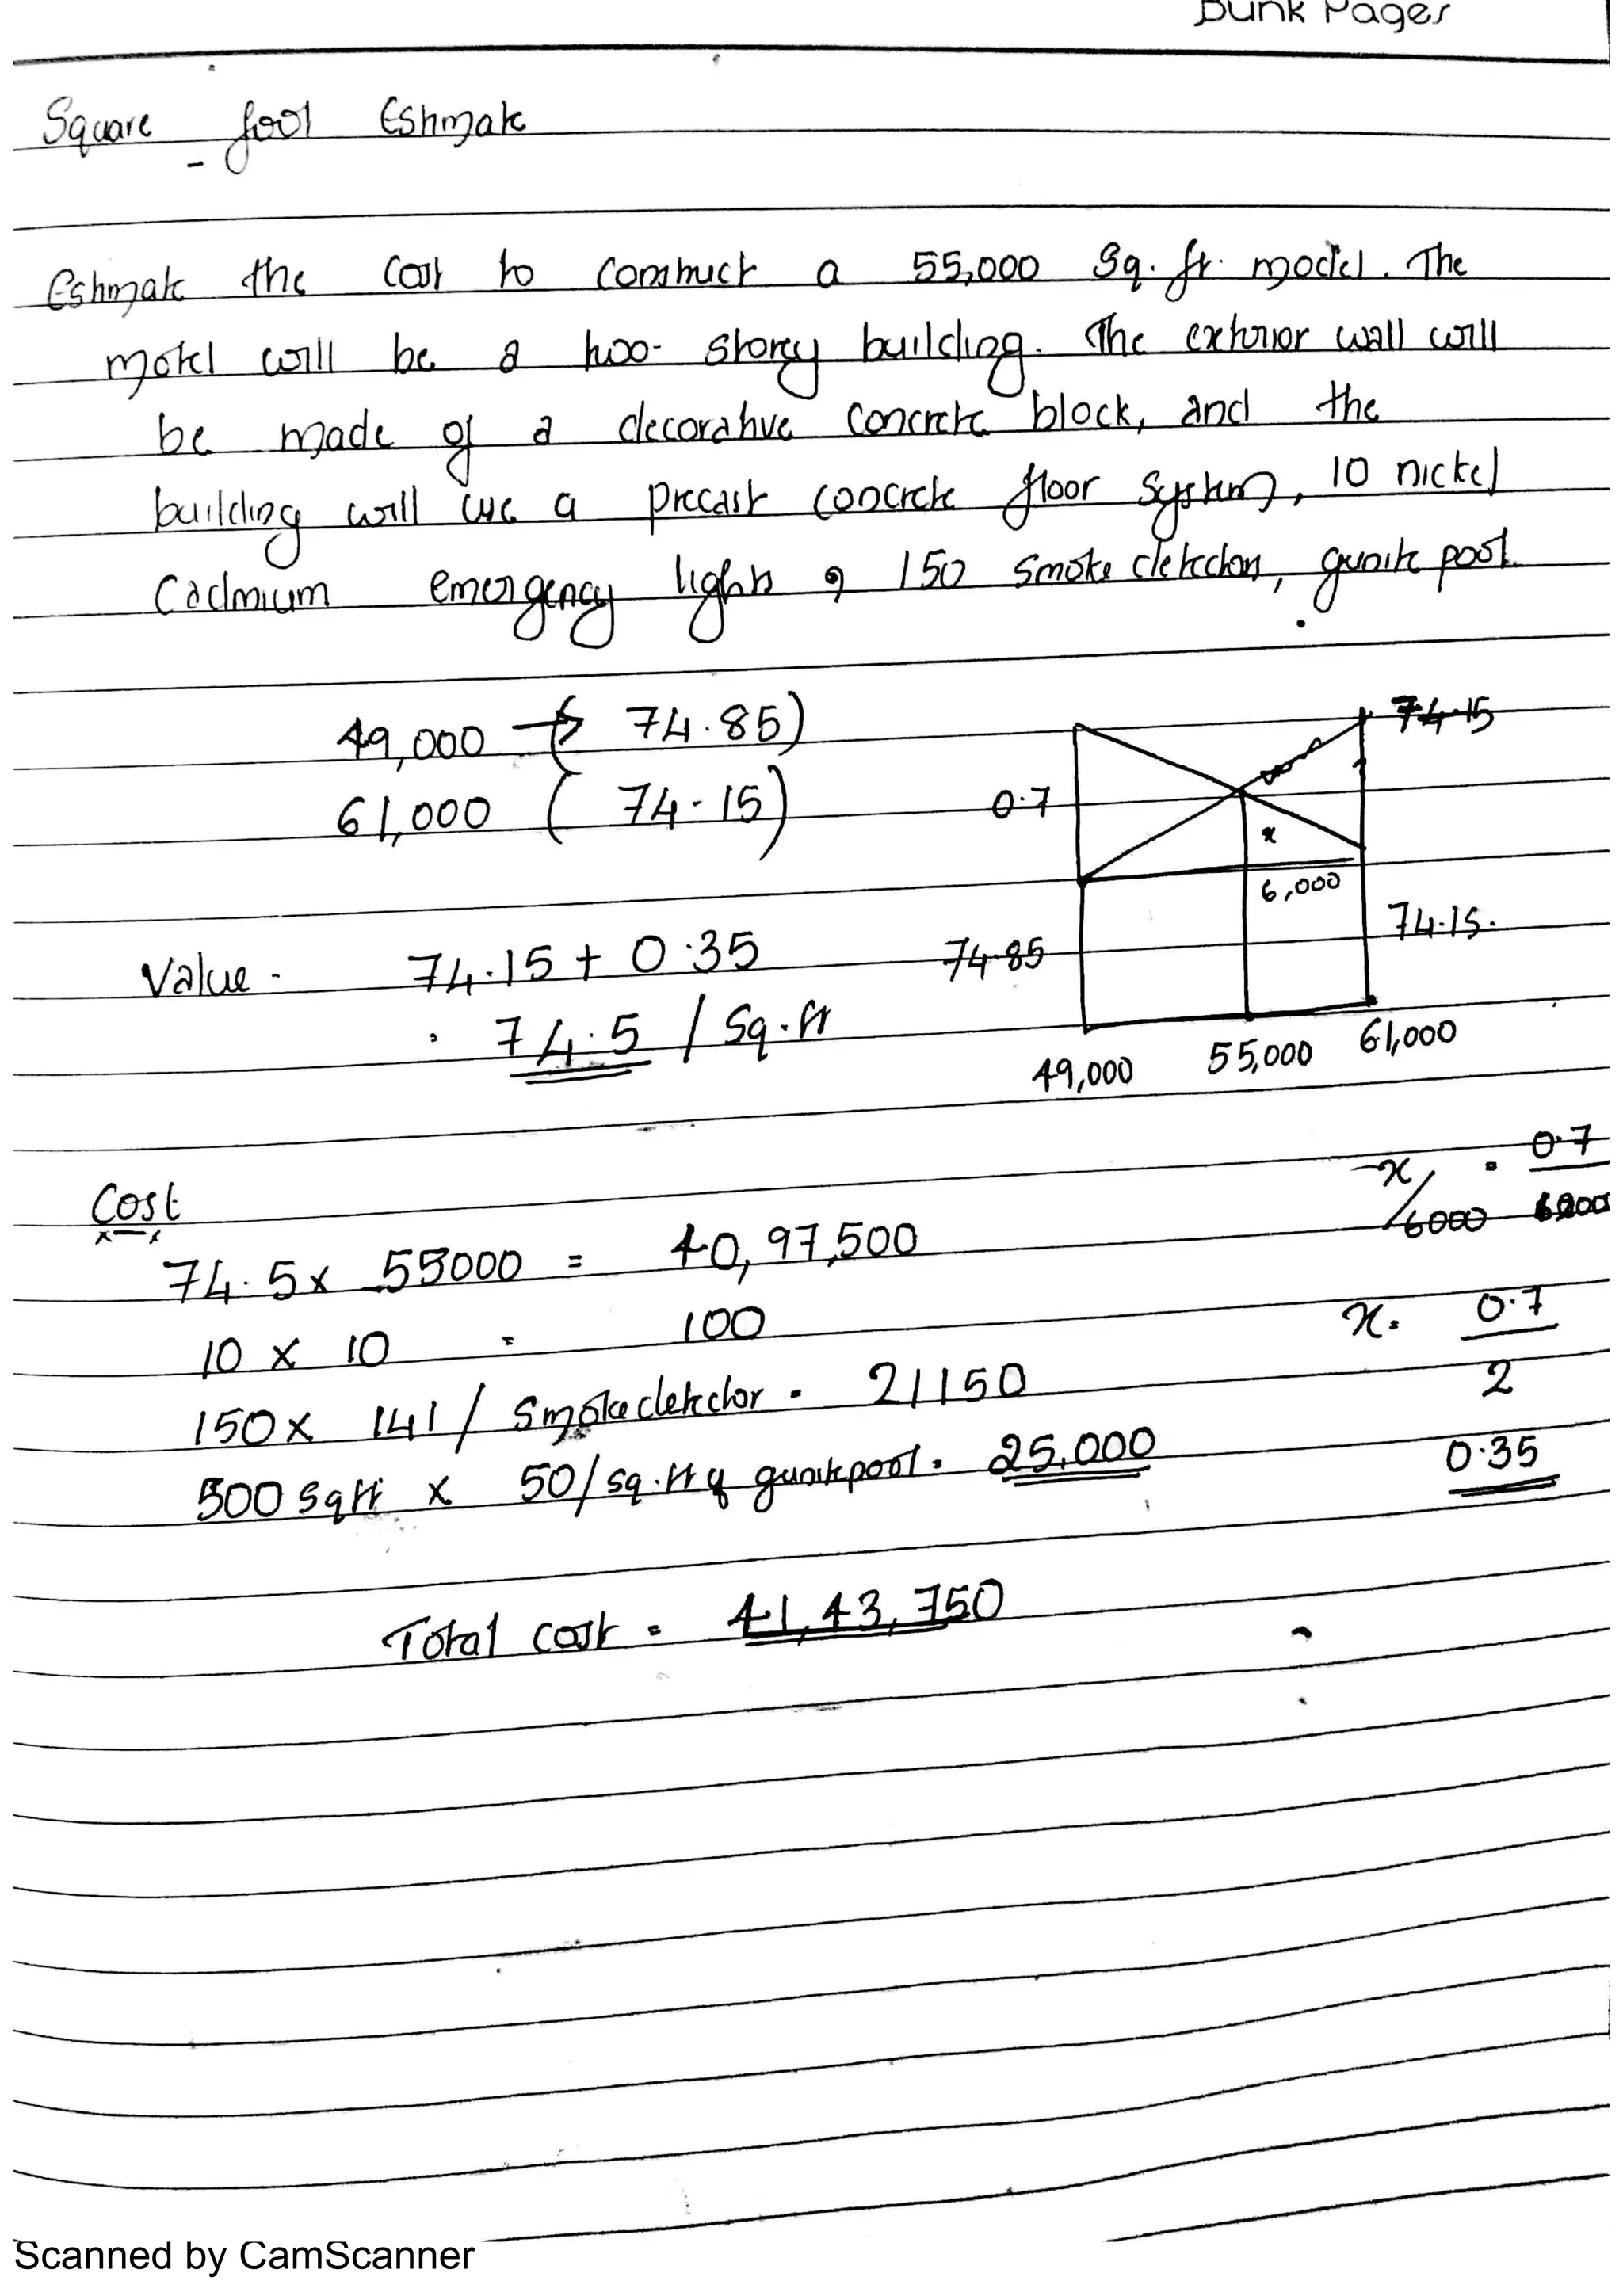 Bunk Pages
Square foot Estimate
Estimate the cost to construct a 55,000 Sq. ft. model. The
motel will be a two- storey building. The exterior wall will
be made of a decorative concrete block, and the
building will use a precast concrete floor system, 10 nickel
Cadmium emergency lights, 150 smoke detectors, gunite pool.
49,000 → ( 74.85)
61,000 ( 74.15)
74.15
0.7
x
6,000
74.85
74.15.
49,000 55,000 61,000
Value - 74.15 + 0.35
= 74.5 / Sq.ft
x/6000 = 0.7
x = 0.7
2
0.35
Cost
74.5 x 55000 = 40,97,500
10 x 10 = 100
150 x 141 / Smokedetector = 21150
500 sqft x 50/sq.ft of gunitepool = 25,000
Total cost = 41,43,750
Scanned by CamScanner